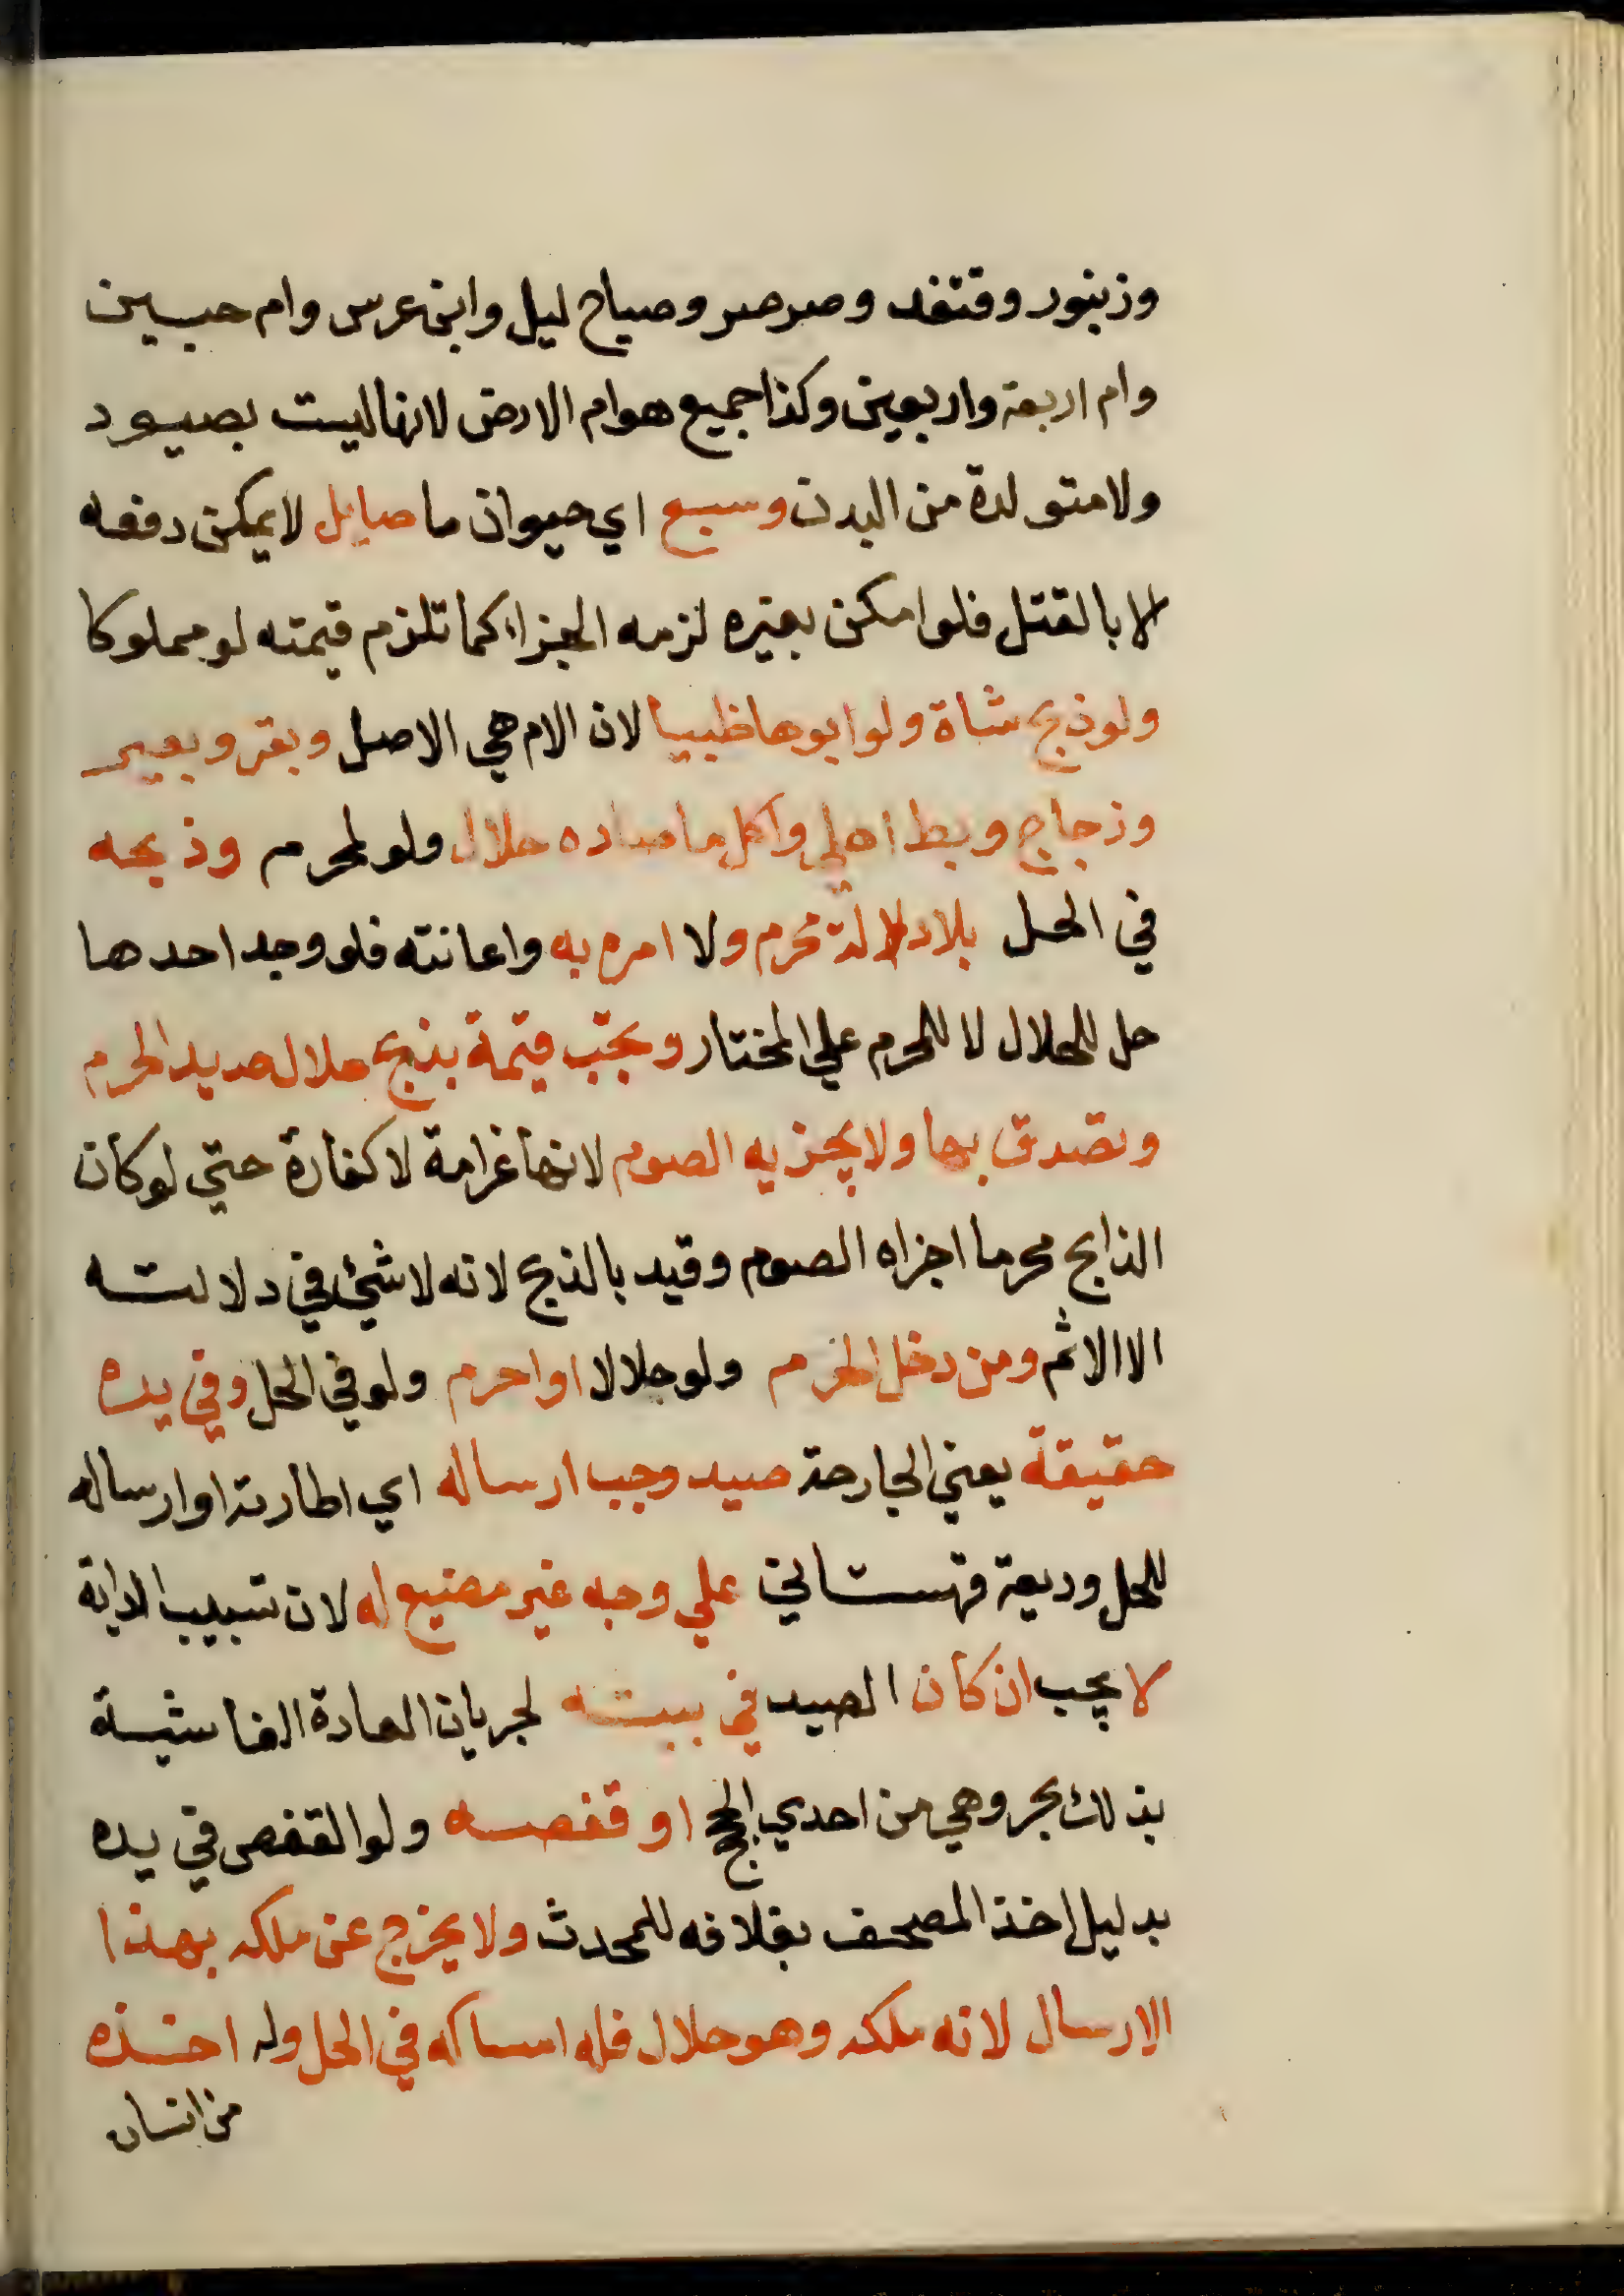 وزنبور وقنفد وصرصر وصياح ليل وابن عرس وام حبين
وام اربعة واربعين وكذا جميع هوام الارض لانها ليست بصيود
ولا متولدة من البدن وسبع اي حيوان ما صايل لا يمكن دفعه
الا بالقتل فلو امكن بغيره لزمه الجزاء كما تلزم قيمته لو مملوكا
ولو ذبح شاة ولو ابوها ظبيا لان الام هي الاصل وبقر وبعير
وزجاج وبط اهلي واكل ما صاده حلال ولو لمحرم وذبحه
في الحل بلا دلالة محرم ولا امره به واعانته فلو وجد احدها
حل للحلال لا للمحرم علي المختار وتجب قيمة بذبح حلال صيد الحرم
وتصدق بها ولا يجزيه الصوم لانها غرامة لا كفارة حتي لو كان
الذابح محرما اجزاه الصوم وقيد بالذبح لانه لا شيئ في دلالته
الا الاثم ومن دخل الحرم ولو حلالا او احرم ولو في الحل وفي يده
حقيقة يعني الجارحة صيد وجب ارساله اي اطارته او ارساله
للحل وديعة قهستاني علي وجه غير مضيع له لان تسييب الدابة
لا يجب ان كان الصيد في بيته لجريان العادة الفاشية
بذلك بحر وهي من احدي الحجج او قفصه ولو القفص في يده
بدليل اخذ المصحف بغلافه للمحدث ولا يخرج عن ملكه بهذا
الارسال لانه ملكه وهو حلال فله امساكه في الحل وله اخذه
من انسان